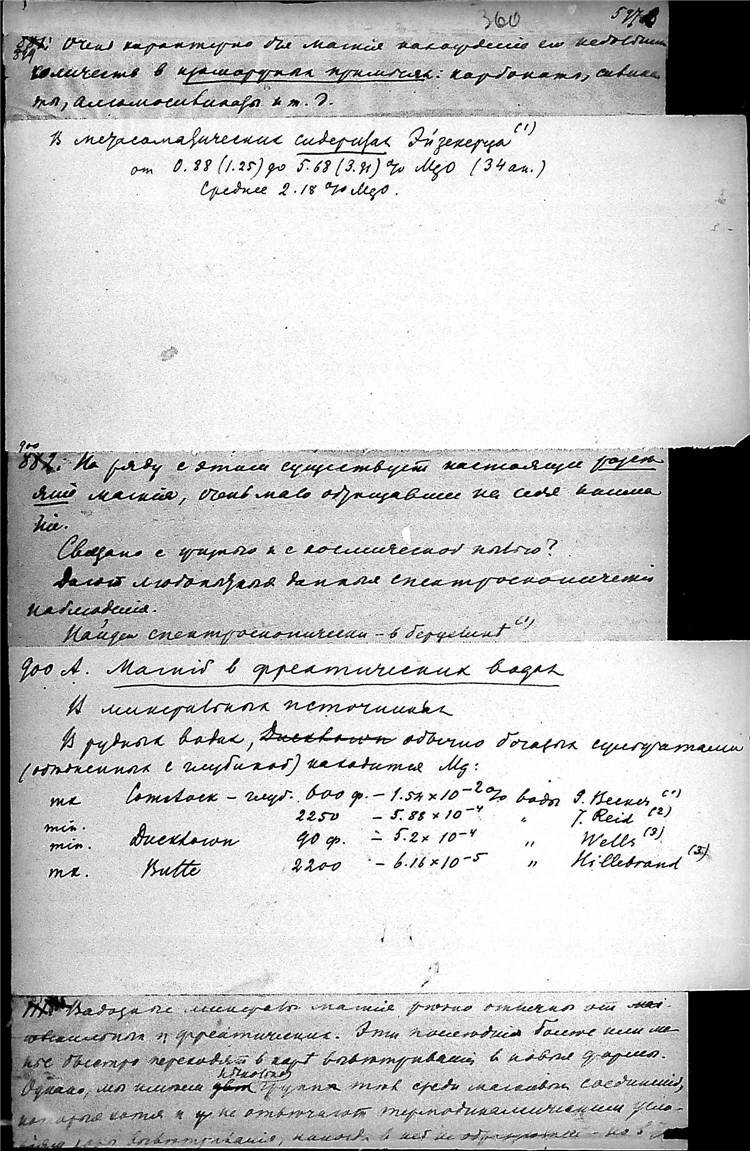 360
899 Очень характерно для магнія нахожденіе его небольших
количеств в изоморфных примесях: карбонаты, силика-
ты, алюмосиликаты и т. д.
В метасоматических сидеритах Эйзенерца (1)
от 0.88 (1.25) до 5.68 (3.91) % MgO (34 ан.)
Среднее 2.18 % MgO.
900
882. На ряду с этим существует настоящее разсея-
ніе магнія, очень мало обращавшее на себя внима-
ніе.
Связано с и с космической пылью?
Дают любопытныя данныя спектроскопическія
наблюденія.
Найден спектроскопически – в (1)
900 А. Магній в фреатических водах
В минеральных источниках
В рудных водах, Ducktown обычно богатых сульфатами
с глубиной) находится Mg:
Comstock – глуб. 600 ф. – 1.54 × 10-2 % воды G. Becker (1)
min. 2250 – 5.88 × 10-4 " J. Reid (2)
min. Ducktown 90 ф. – 5.2 × 10-4 " Wells (3)
Butte 2200 – 6.16 × 10-5 " Hillebrand (3)
Вадозные минералы магнія резко отличны от
и фреатических. Эти последніе более или ме-
нее быстро переходят в коре вывѣтриванія в новыя формы.
Однако, мы имеем группы тел среди магніевых соединеній,
которыя хотя и не отвѣчают термодинамическим усло-
віям коры вывѣтриванія, никогда в ней не – но в